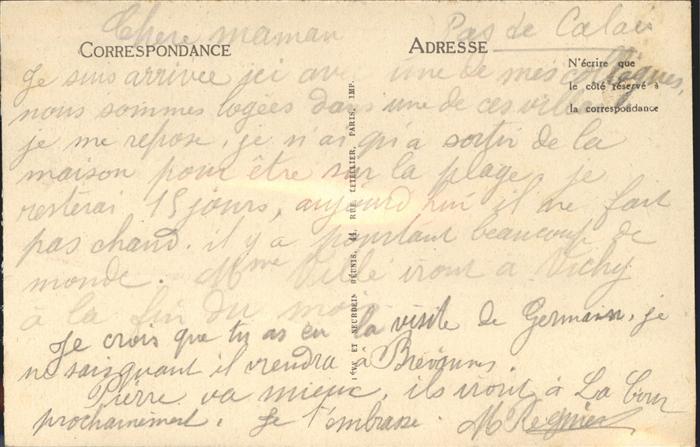 Chere maman
Pas de Calais
CORRESPONDANCE
ADRESSE
N'écrire que
le côté réservé à
la correspondance
Je suis arrivée ici avec une de mes collègues,
nous sommes logées dans une de ces villas
je me repose, je n'ai qu'a sortir de la
maison pour être sur la plage, je
resterai 15 jours, aujourd'hui il ne fait
pas chaud. il y a pourtant beaucoup de
monde. Mme Villé iront a Vichy
à la fin du mois.
Je crois que tu as eu la visite de Germain, je
ne sais quant il viendra à
Pierre va mieux, ils iront à La Cour
prochainement. Je t'embrasse. M Regnier
IMP. ET NEURDEIN RÉUNIS, 44, RUE LETELLIER, PARIS, IMP.